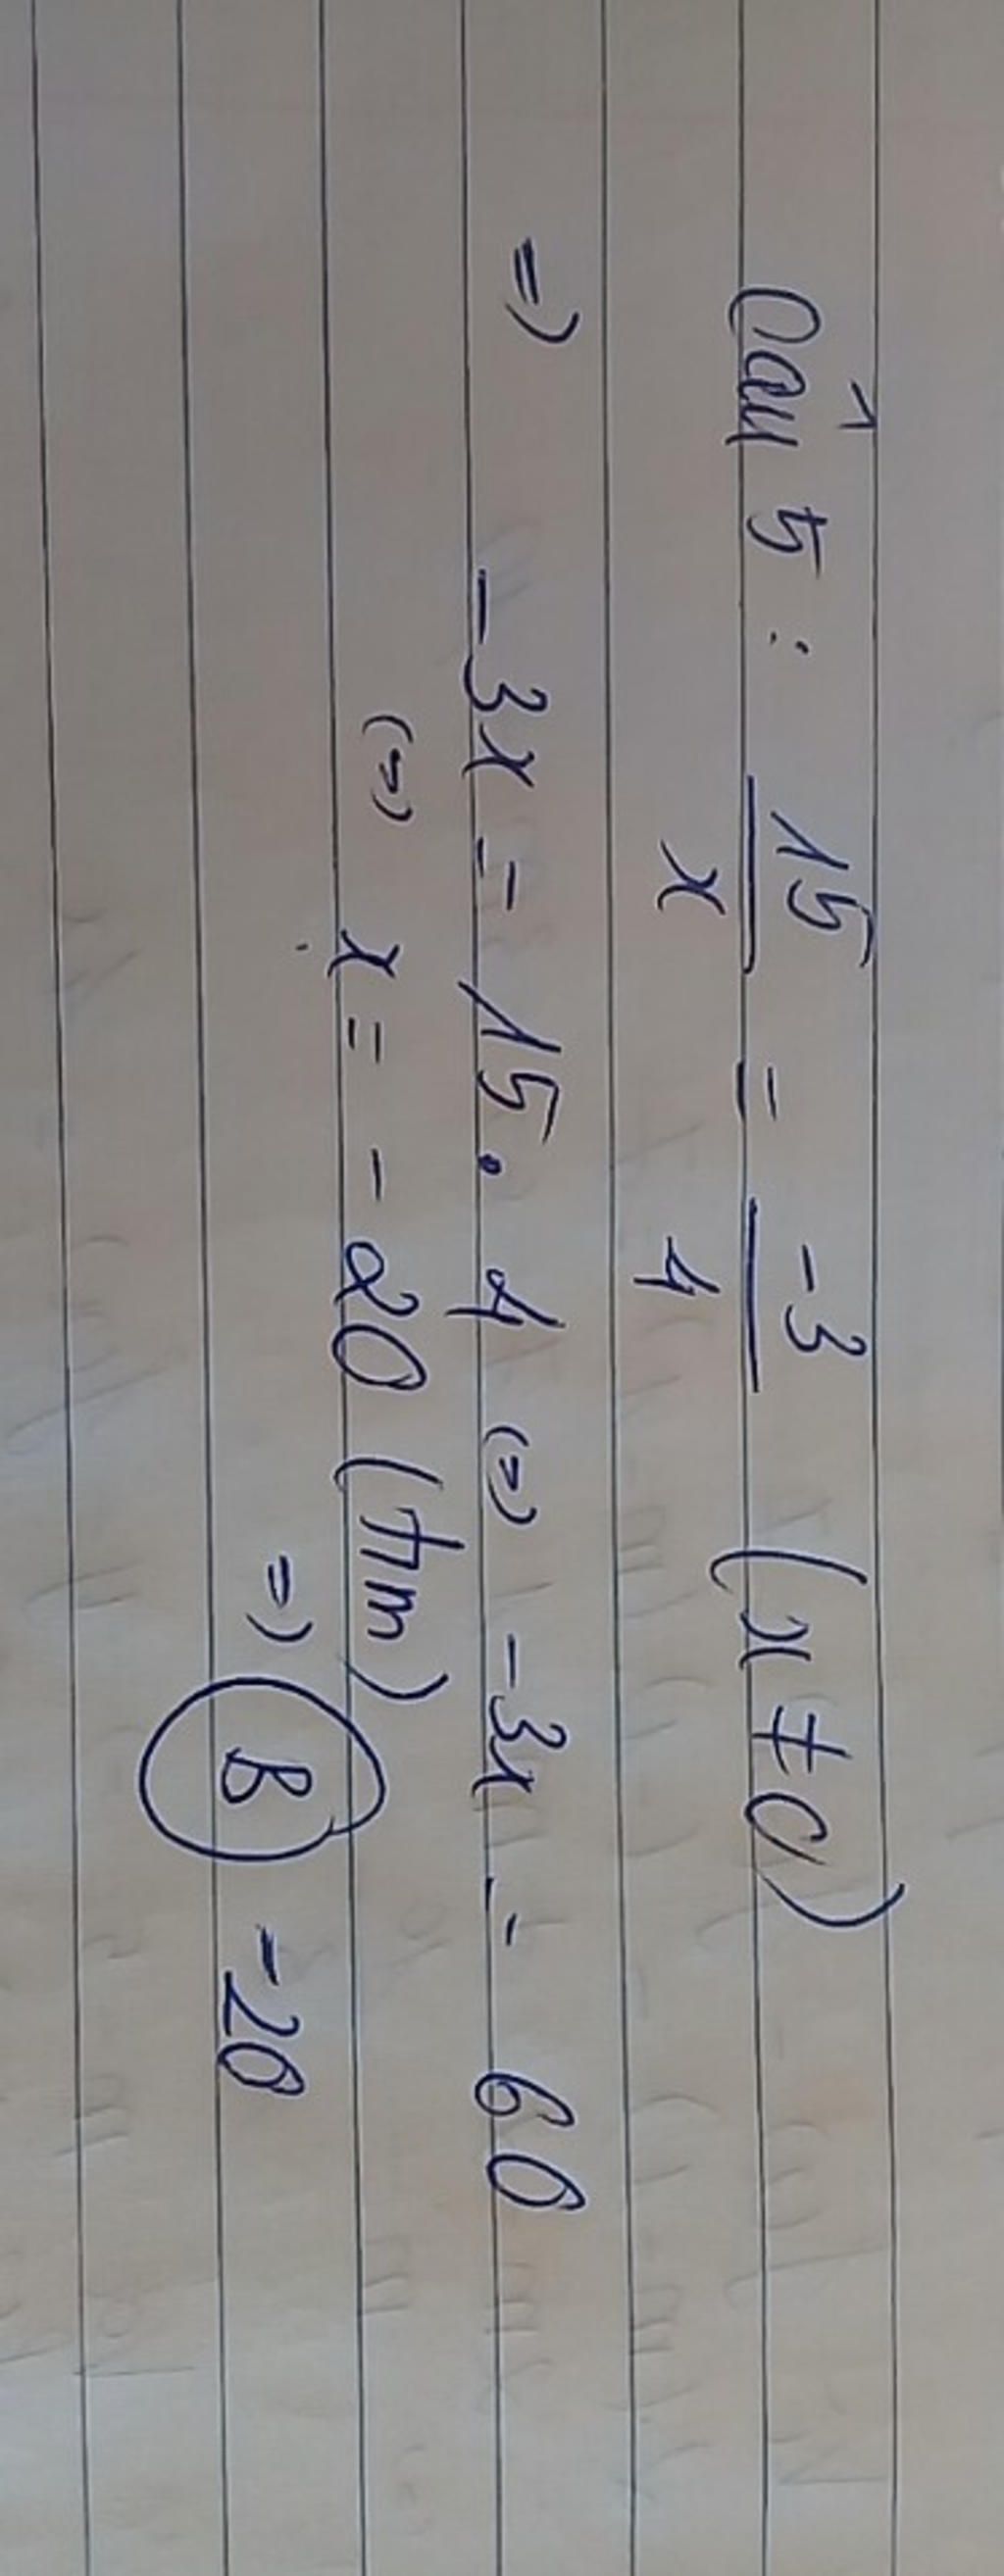 Câu 5 : 15/x = -3/4 (x ≠ 0)
=> -3x = 15 . 4 <=> -3x = 60
<=> x = - 20 (tm)
=> B -20